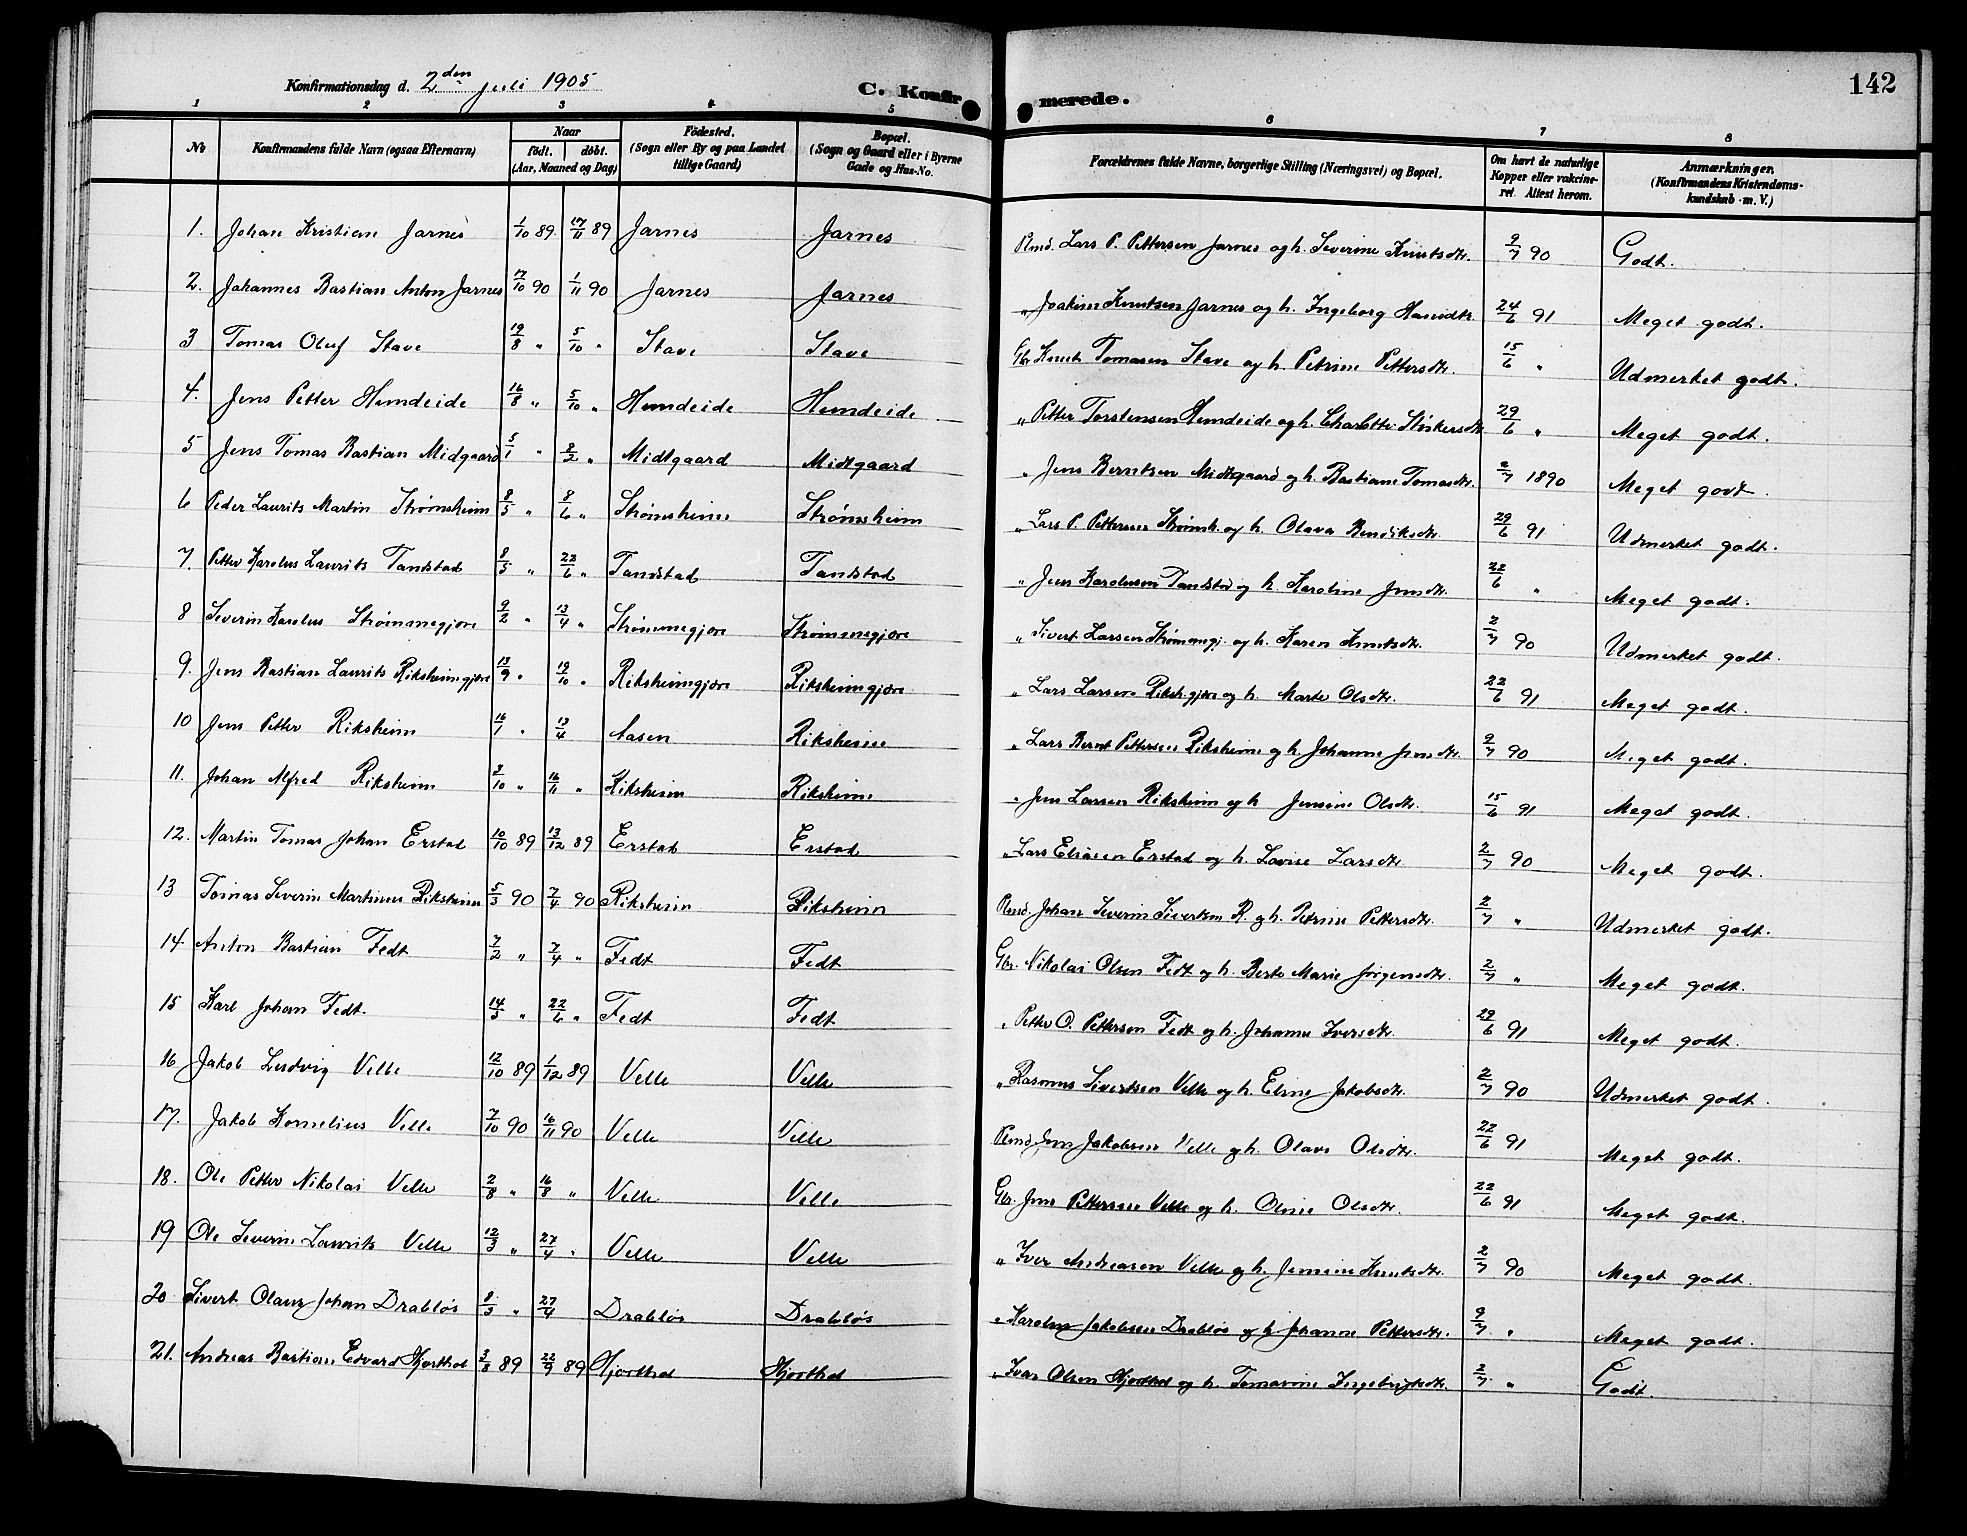 Konfirmationsdag d. 2den juli 1905
C. Konfirmerede.
142
1 2 3 4 5 6 7 8
No
Konfirmandens fulde Navn (ogsaa Efternavn)
Naar
født. døbt.
(Aar, Maaned og Dag)
Fødested.
(Sogn eller By og paa Landet
tillige Gaard)
Bopæl.
(Sogn og Gaard eller i Byerne
Gade og Hus-No.
Forældrenes fulde Navne, borgerlige Stilling (Næringsvei) og Bopæl.
Om havt de naturlige
Kopper eller vakcine-
ret. Attest herom.
Anmærkninger.
(Konfirmandens Kristendoms-
kundskab m. V.)
1. Johan Kristian Jarnes 1/10 89 17/11 89 Jarnes Jarnes Rmd. Lars P. Pettersen Jarnes og h. Severine Knutsdtr. 2/7 90 Godt.
2. Johannes Bastian Anton Jarnes 7/10 90 1/11 90 Jarnes Jarnes " Joakim Knutsen Jarnes og h. Ingeborg Hansdtr. 24/6 91 Meget godt.
3 Tomas Oluf Stave 19/8 " 5/10 " Stave Stave Gbr. Knut Tomasen Stave og h. Petrine Pettersdtr. 15/6 " Udmerket godt.
4. Jens Petter Hundeide 16/8 " 5/10 " Hundeide Hundeide " Petter Torstensen Hundeide og h. Charlotte 29/6 " Meget godt.
5 Jens Tomas Bastian Midgaard 5/1 " 2/2 " Midtgaard Midtgaard " Jens Berntsen Midtgaard og h. Bastiane Tomasdtr. 2/7 1890 Meget godt.
6 Peder Laurits Martin Strømsheim 8/5 " 8/6 " Strømsheim Strømsheim " Lars P. Pettersen Strømsh. og h. Olava Bendiksdtr. 29/6 91 Udmerket godt.
7. Petter Karolus Laurits Tandstad 8/5 " 22/6 " Tandstad Tandstad " Jens Karolusen Tandstad og h. Karoline Jensdtr. 22/6 " Meget godt.
8 Severin Karolus Strømmegjære 9/2 " 13/4 " Strømmegjære Strømmegjære " Sivert Larsen Strømmegj. og h. Karen Knutsdtr. 2/7 90 Udmerket godt.
9. Jens Bastian Laurits Riksheimgjære 13/9 " 19/10 " Riksheimgjære Riksheimgjære " Lars Larsen Rikshgjære og h. Marte Olsdtr. 22/6 91 Meget godt.
10 Jens Petter Riksheim 16/ " 13/4 Aasen Riksheim " Lars Bernt Pettersen Riksheim og h. Johanne Jensdtr. 2/7 90 Meget godt.
11. Johan Alfred Riksheim /10 " 16/11 " Riksheim Riksheim " Jens Larsen Riksheim og h. Jensine Olsdtr. 15/6 91 Meget godt.
12. Martin Tomas Johan Erstad 10/10 89 13/12 89 Erstad Erstad " Lars Eliasen Erstad og h. Lovise Larsdtr. 2/7 90 Meget godt.
13 Tomas Severin Martinus Riksheim 5/3 90 7/4 90 Riksheim Riksheim Rmd. Johan Severin Sivertsen R. og h. Petrine Pettersdtr. 2/7 " Udmerket godt.
14 Anton Bastian Fedt 7/2 " 7/4 " Fedt Fedt Gbr. Nikolai Olsen Fedt og h. Berte Marie Jørgensdtr. 2/7 " Meget godt.
15 Karl Johan Fedt. 14/3 " 22/6 " Fedt Fedt " Petter O. Pettersen Fedt og h. Johanne Iversdtr. 29/6 91 Meget godt.
16 Jakob Ludvig Velle 12/10 89 1/12 89 Velle Velle " Rasmus Sivertsen Velle og h. Eline Jakobsdtr. 2/7 90 Udmerket godt.
17. Jakob Kornelius Velle 7/10 90 16/11 90 Velle Velle Rmd. Jens Jakobsen Velle og h. Olave Olsdtr. 22/6 91 Meget godt.
18. Ole Petter Nikolai Velle 2/8 " 16/8 " Velle Velle Gbr. Jens Pettersen Velle og h. Oline Olsdtr. 22/6 91 Meget godt.
19 Ole Severin Laurits Velle 12/3 " 27/4 " Velle Velle " Iver Andreasen Velle og h. Jensine Knutsdtr. 2/7 90 Meget godt.
20 Sivert Olaus Johan Drabløs 8/3 " 27/4 Drabløs Drabløs " Karolus Jakobsen Drabløs og h. Johanne Pettersdtr. 2/7 " Meget godt.
21. Andreas Bastian Edvard Hjorthol 3/8 89 22/9 89 Hjorthol Hjorthol " Ivar Olsen Hjorthol og h. Tomasine Ingebrigtsdtr. 2/7 " Godt.